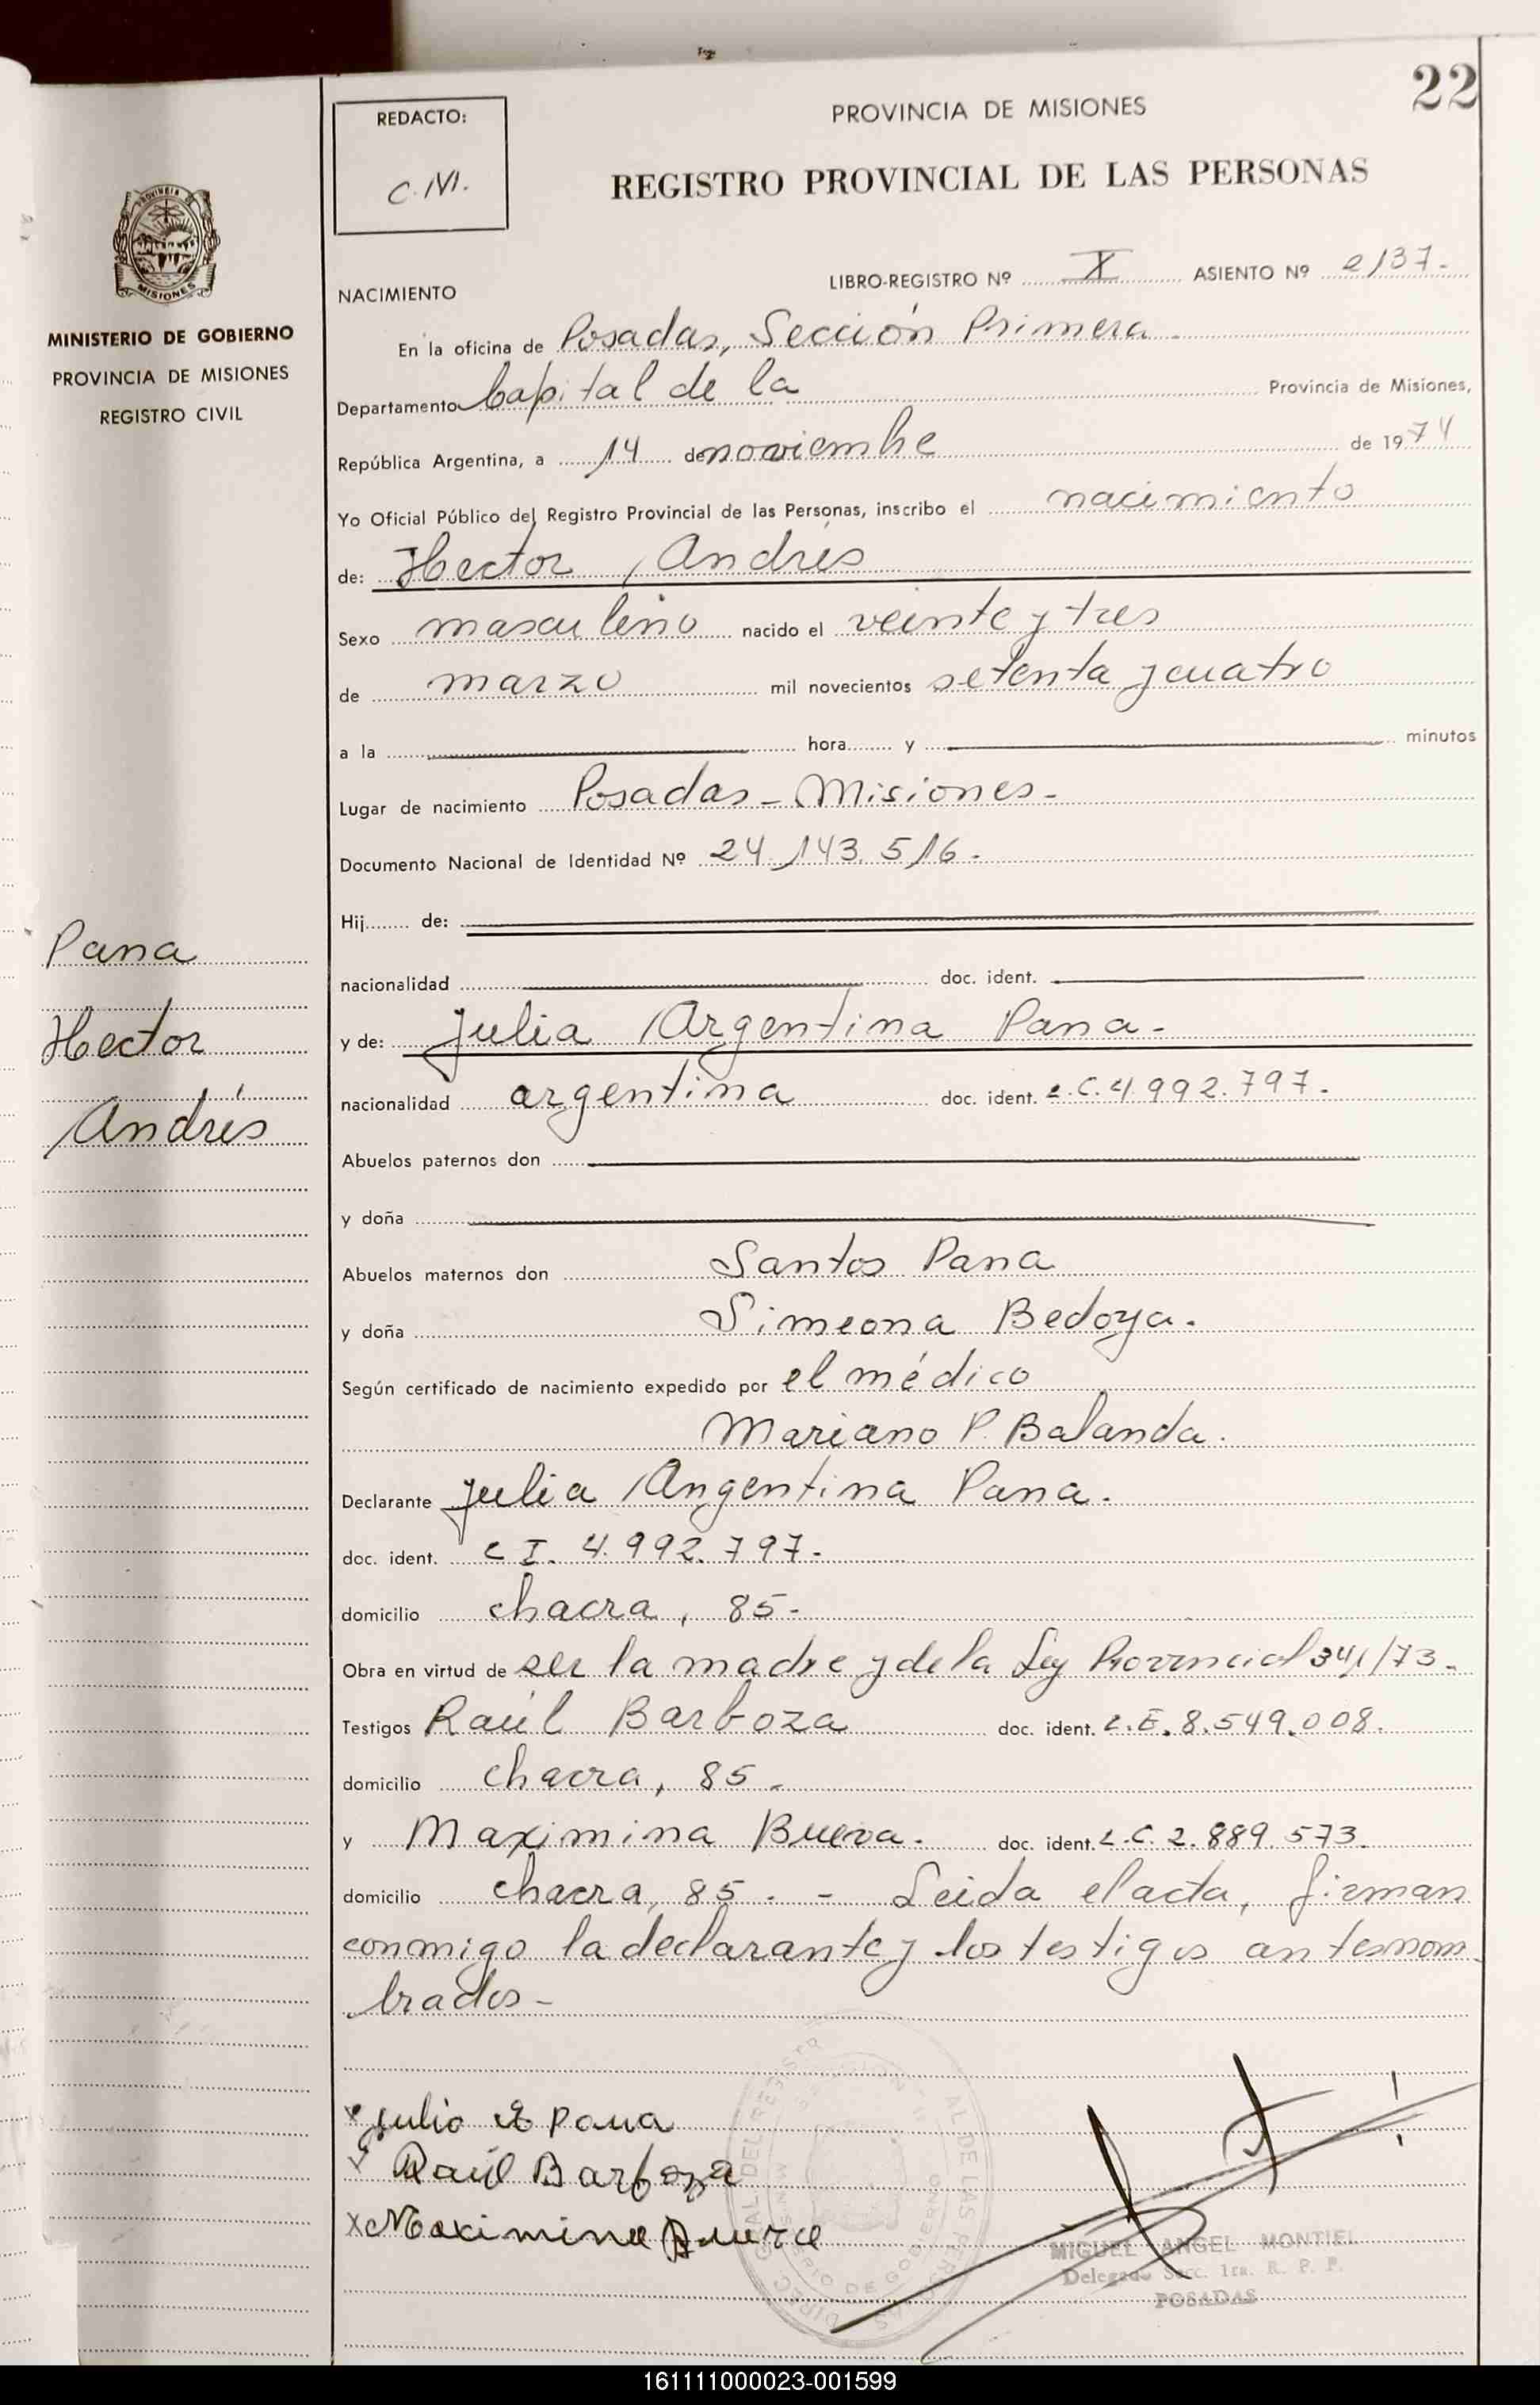 22
REDACTO:
C.M.
PROVINCIA DE MISIONES
REGISTRO PROVINCIAL DE LAS PERSONAS
MISIONES
MINISTERIO DE GOBIERNO
PROVINCIA DE MISIONES
REGISTRO CIVIL
Pana
Hector
Andrés
NACIMIENTO
LIBRO-REGISTRO Nº X ASIENTO Nº 2137.
En la oficina de Posadas, Sección Primera
Departamento Capital de la Provincia de Misiones,
República Argentina, a 14 de noviembre de 1974
Yo Oficial Público del Registro Provincial de las Personas, inscribo el nacimiento
de: Hector Andrés
Sexo masculino nacido el veinte y tres
de marzo mil novecientos setenta y cuatro
a la hora y minutos
Lugar de nacimiento Posadas - Misiones -
Documento Nacional de Identidad Nº 24.143.516.
Hij de:
nacionalidad doc. ident.
y de: Julia Argentina Pana -
nacionalidad argentina doc. ident. L.C. 4.992.797.
Abuelos paternos don
y doña
Abuelos maternos don Santos Pana
y doña Simeona Bedoya.
Según certificado de nacimiento expedido por el médico
Mariano P. Balanda.
Declarante Julia Argentina Pana.
doc. ident. C I. 4.992.797.
domicilio chacra, 85-
Obra en virtud de ser la madre y de la Ley Provincial 341/73.
Testigos Raúl Barboza doc. ident. L.E. 8.549.008.
domicilio chacra, 85.
y Maximina doc. ident. L.C. 2.889.573.
domicilio chacra, 85. - Leida el acta, firman
conmigo la declarante y los testigos antesnom
brados-
Pana
Raúl Barboza
MIGUEL ANGEL MONTIEL
Delegado Secc. 1ra. R. P. P.
POSADAS
161111000023-001599